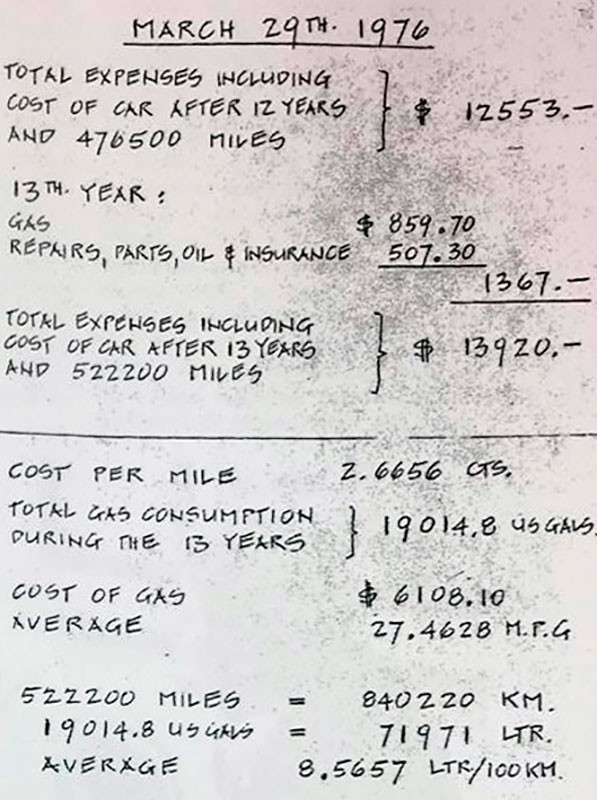 MARCH 29TH. 1976
TOTAL EXPENSES INCLUDING
COST OF CAR AFTER 12 YEARS
AND 476500 MILES
$ 12553.—
13TH. YEAR :
GAS $ 859.70
REPAIRS, PARTS, OIL & INSURANCE 507.30
1367.—
TOTAL EXPENSES INCLUDING
COST OF CAR AFTER 13 YEARS
AND 522200 MILES
$ 13920.—
COST PER MILE 2.6656 CTS.
TOTAL GAS CONSUMPTION
DURING THE 13 YEARS
19014.8 US GALS.
COST OF GAS $ 6108.10
AVERAGE 27.4628 M.P.G
522200 MILES = 840220 KM.
19014.8 US GALS = 71971 LTR.
AVERAGE 8.5657 LTR/100KM.